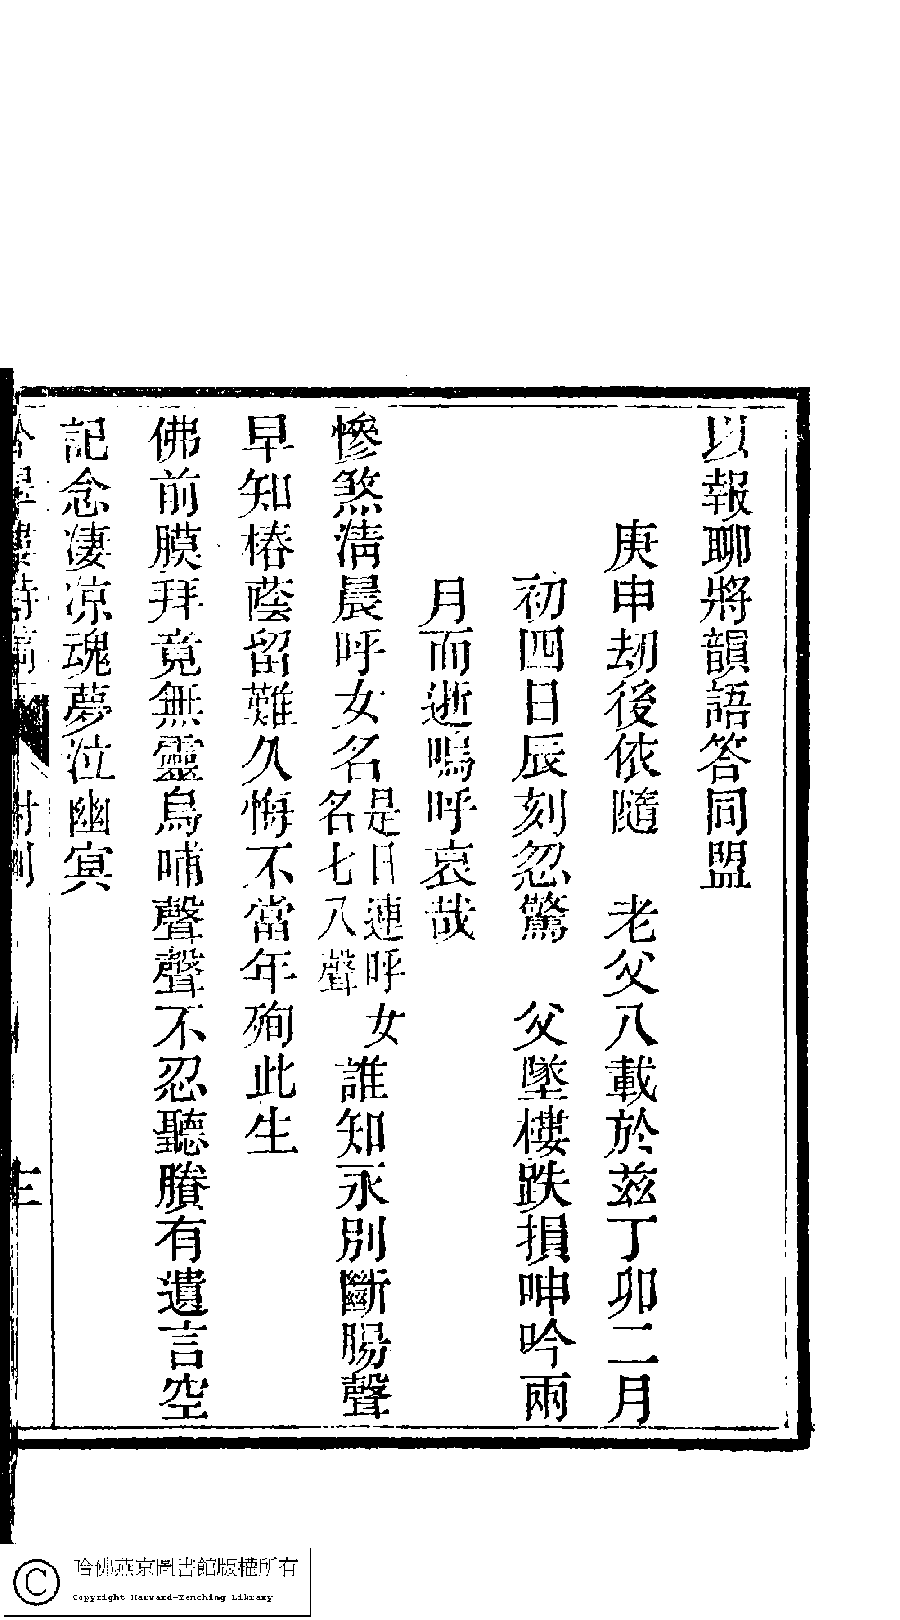 以報聊將韻語答同盟
庚申劫後依隨　老父八載於茲丁卯二月
初四日辰刻忽驚　父墜樓跌損呻吟兩
月而逝嗚呼哀哉
慘煞淸晨呼女名是日連呼女名七八聲誰知永別斷腸聲
早知椿蔭留難久悔不當年殉此生
佛前膜拜竟無靈烏哺聲聲不忍聽賸有遺言空
記念淒凉魂夢泣幽冥
哈佛燕京圖書館版權所有
Copyright Harvard-Yenching Library